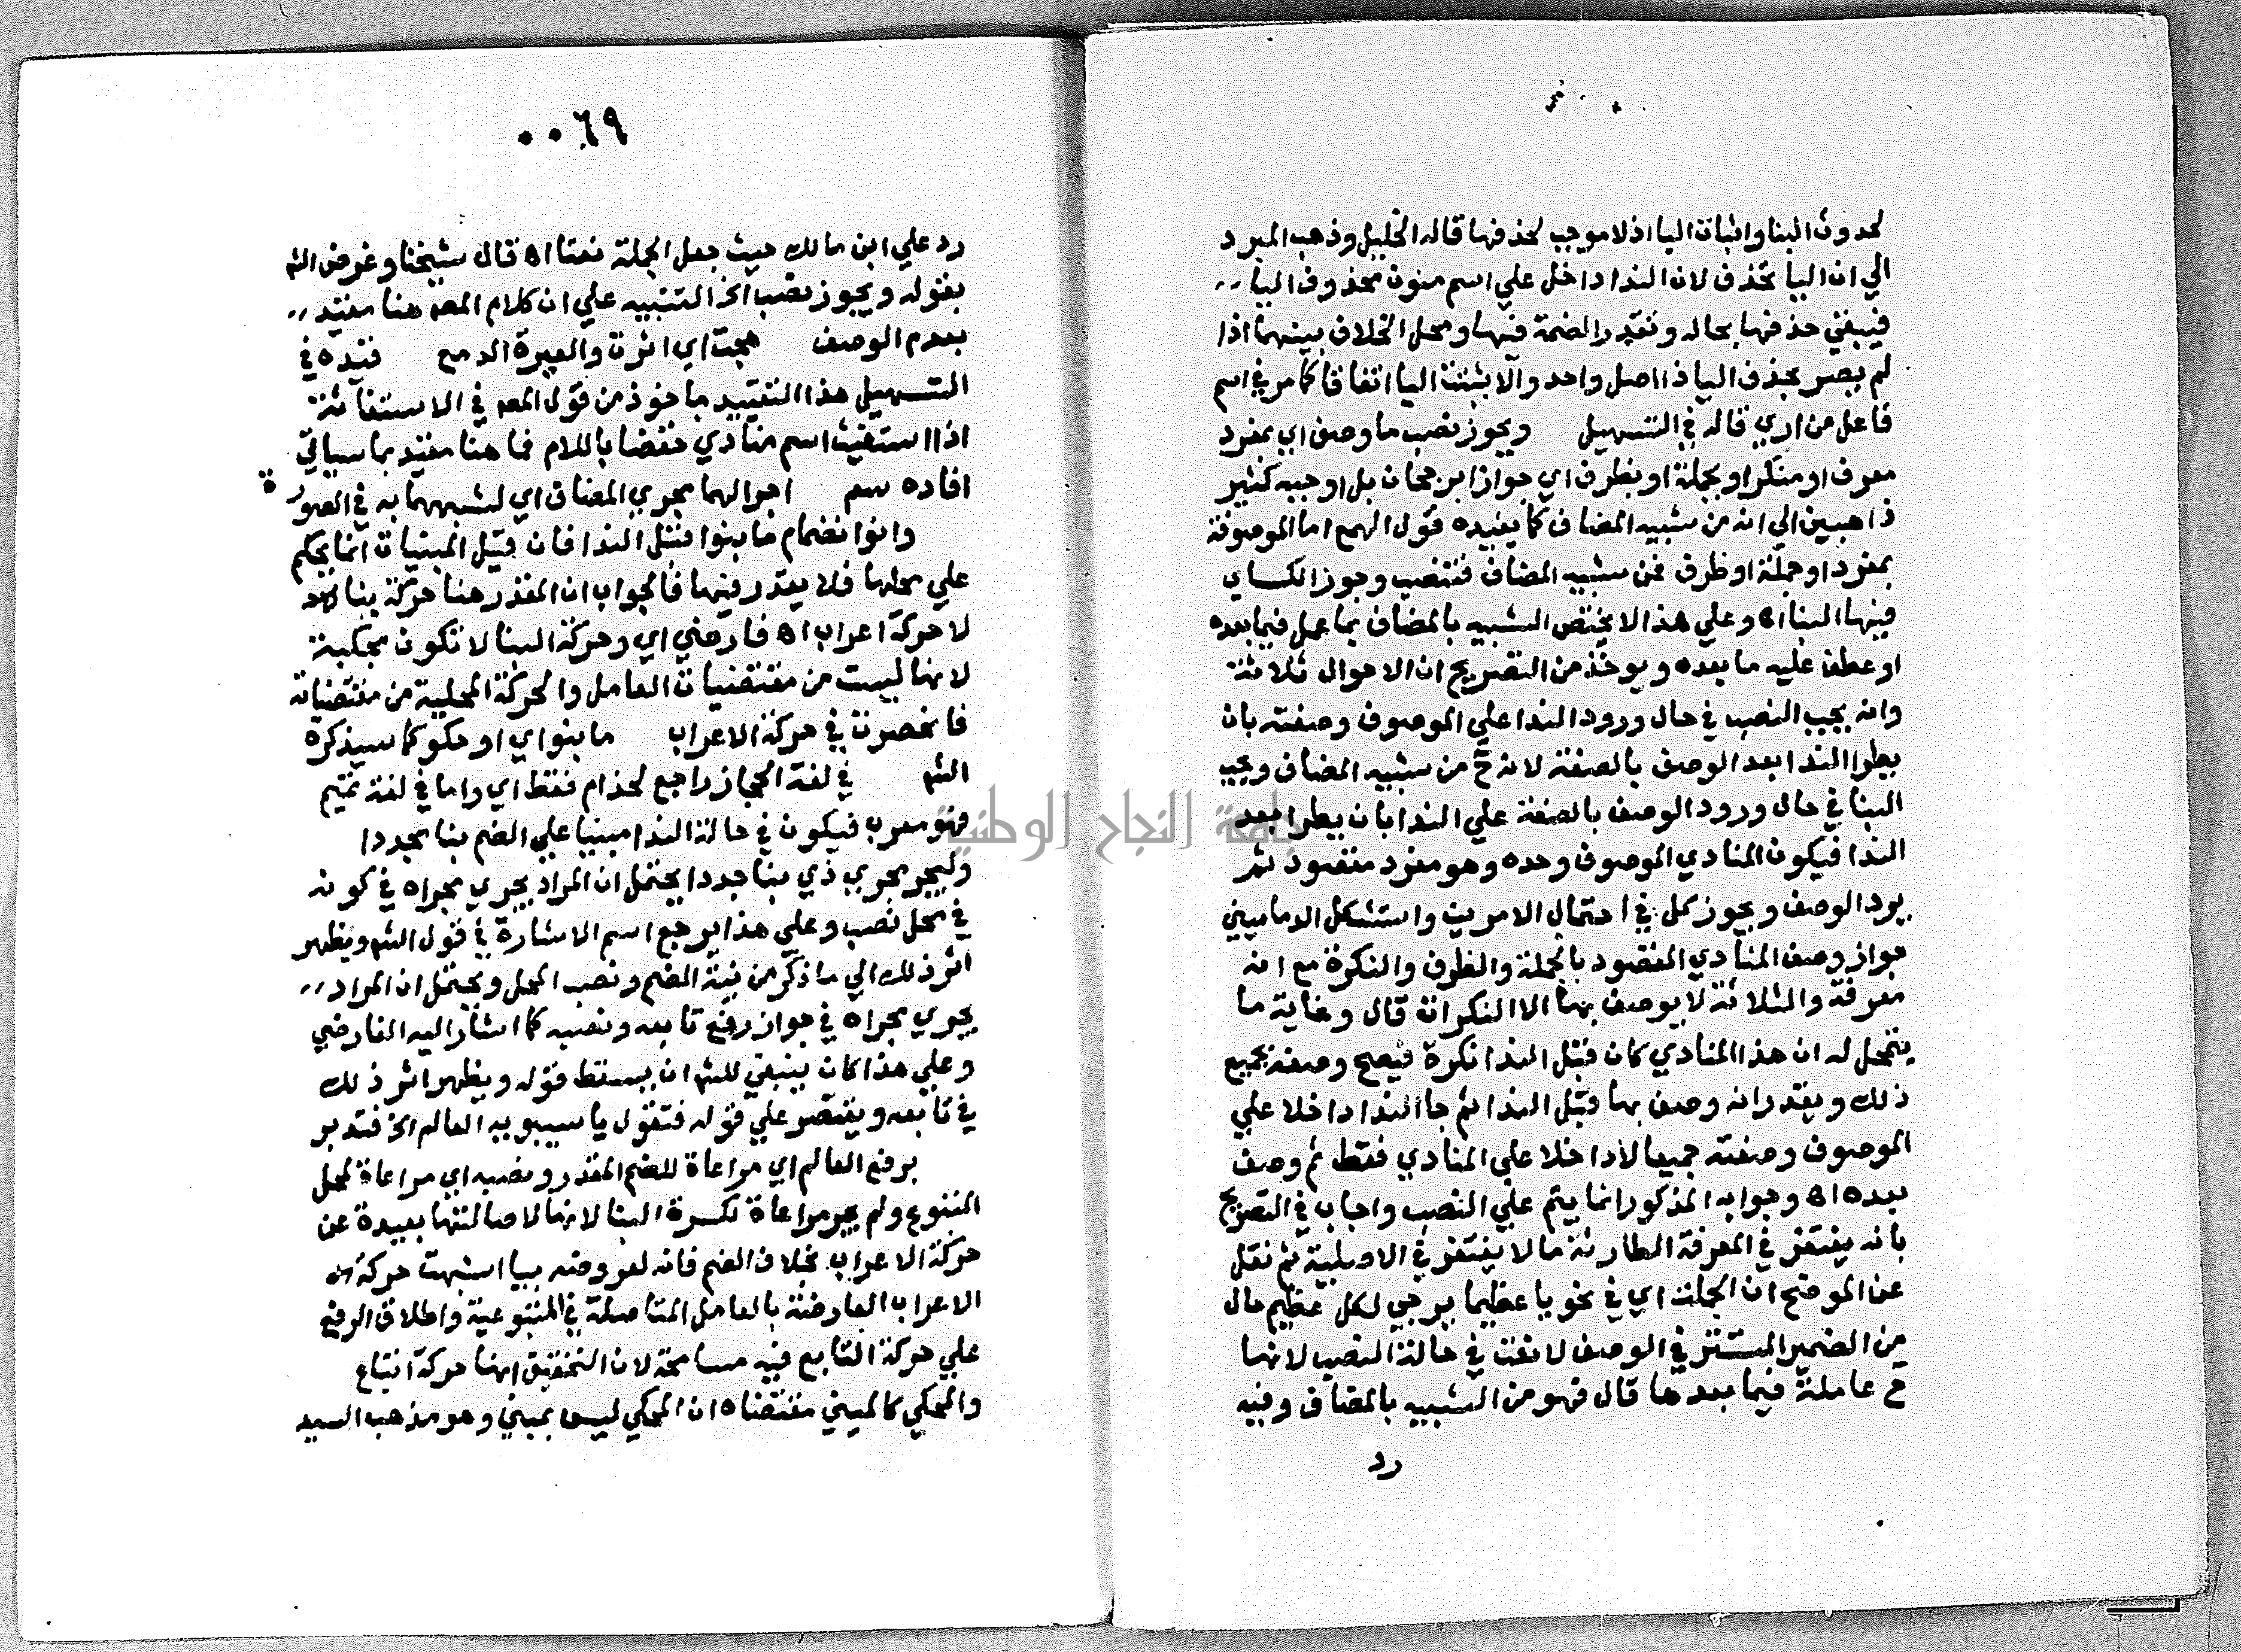 لحدوث البنا واثبات اليا اذ لا موجب لحذفها قاله الخليل وذهب المبرد
الي ان اليا تحذف لان الندا داخل علي اسم منون محذوف اليا
فيبقي حذفها بحاله وتقدر الضمة فيها ومحل الخلاف بينهما اذا
لم يصر بحذف اليا ذا اصل واحد والا بثتت اليا اتفاقا كما مر في اسم
فاعل من اري قاله في التسهيل ويجوز نصب ما وصف اي بمفرد
معرف او منكر او بجملة او بظرف اي جوازا برجحان بل اوجبه كثير
ذاهبين الي انه من شبيه المضاف كما يفيده قول الهمع اما الموصوفة
بمفرد او جملة او ظرف فمن شبيه المضاف فتنصب وجوز الكساي
فيها البنا اه وعلي هذا لا يختص الشبيه بالمضاف بما عمل فيما بعده
او عطف عليه ما بعده ويوخذ من التصريح ان الاحوال ثلاثة
وانه يجب النصب في حال ورود الندا علي الموصوف وصفته بان
يطرا الندا بعد الوصف بالصفة لانه ح من شبيه المضاف ويجب
البنا في حال ورود الوصف بالصفة علي الندا بان يطرا بعد
الندا فيكون المنادي الموصوف وحده وهو مفرد مقصود ثم
يرد الوصف ويجوز كل في احتمال الامرين واستشكل الدماميني
جواز وصف المنادي المقصود بالجملة والظرف والنكرة مع انه
معرفة والثلاثة لا يوصف بها الا النكرات قال وغاية ما
يتمحل له ان هذا المنادي كان قبل الندا نكرة فيصح وصفه بجميع
ذلك ويقدر انه وصف بها قبل الندا ثم جا الندا داخلا علي
الموصوف وصفته جميعا لا داخلا علي المنادي فقط ثم وصف
بعده اه وجوابه المذكور انما يتم علي النصب واجاب في التصريح
بانه يغتفر في المعرفة الطارئة ما لا يغتفر في الاصلية ثم نقل
عن الموضح ان الجملة اي في نحو يا عظيما يرجي لكل عظيم حال
من الضمير المستتر في الوصف لا نعت في حالة النصب لانها
ح عاملة فيما بعدها قال فهو من الشبيه بالمضاف وفيه
رد
٠٠٦٩
رد علي ابن مالك حيث جعل الجملة نعتا اه قال شيخنا وغرض الشم
بقوله ويجوز نصب الخ التنبيه علي ان كلام المصه هنا مقيد
بعدم الوصف هجت اي اثرت والعبرة الدمع قيده في
التسهيل هذا التقييد ماخوذ من قول المصه في الاستغاثة
اذا استغيث اسم منادي خفضا باللام فما هنا مقيد بما سياتي
افاده سم اجرالهما مجري المضاف اي لشبههما به في الصورة
وانوا نضمام ما بنوا قبل الندا فان قيل المبنيات انما يحكم
علي محلها فلا يقدر فيها فالجواب ان المقدر هنا حركة بنا
لا حركة اعراب اه فارضي اي وحركة البنا لا تكون محلية
لانها ليست من مقتضيات العامل والحركة المحلية من مقتضياته
فانحصرت في حركة الاعراب ما بنوا اي او حكو كما سيذكره
الشم في لغة الحجاز راجع لحذام فقط اي واما في لغة تميم
فهو معرب فيكون في حالة الندا مبنيا علي الضم بنا مجددا
وليجر مجري ذي بنا جددا يحتمل ان المراد يجري مجراه في كونه
في محل نصب وعلي هذا يرجع اسم الاشارة في قول الشم ويظهر
اثر ذلك الي ما ذكر من نية الضم ونصب المحل ويحتمل ان المراد
يجري مجراه في جواز رفع تابعه ونصبه كما اشار اليه الفارضي
وعلي هذا كان ينبغي للشم ان يسقط قوله ويظهر اثر ذلك
في تابعه ويقتصر علي قوله فتقول يا سيبويه العالم الخ فتدبر
برفع العالم اي مراعاة للضم المقدر ونصبه اي مراعاة لمحل
المتبوع ولم يجر مراعاة لكسرة البنا لانها لاصالتها بعيدة عن
حركة الاعراب بخلاف الضم فانه لعروضه بيا اشبهت حركة
الاعراب العارضة بالعامل المتاصلة في المتبوعية واطلاق الرفع
علي حركة التابع فيه مسامحة لان التحقيق انها حركة اتباع
والمحكي كالمبني مقتضاه ان المحكي ليس بمبني وهو مذهب السيد
جامعة النجاح الوطنية